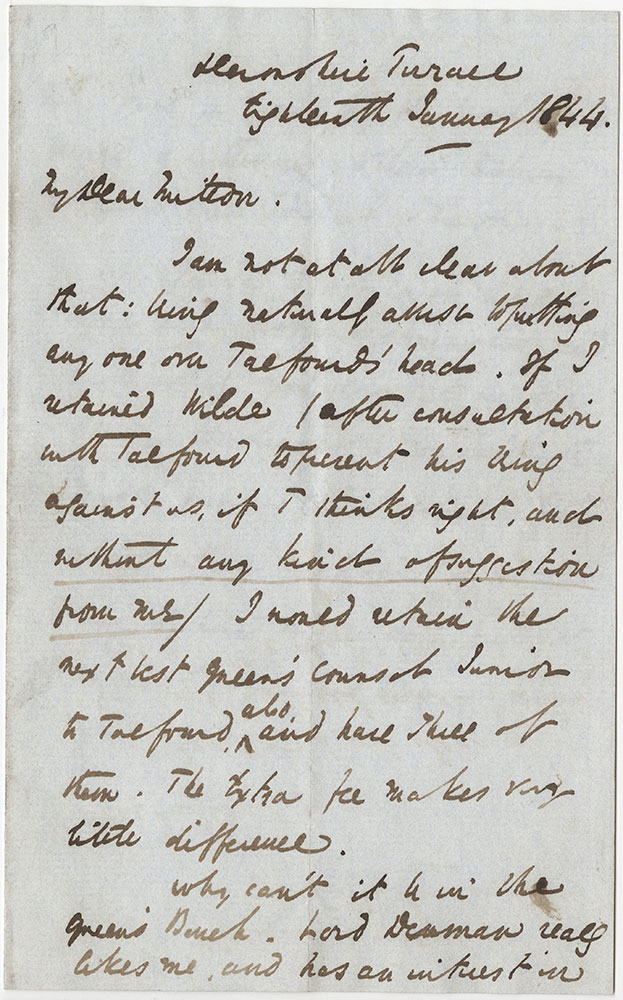 Devonshire Terrace
Eighteenth January 1844.
My Dear Mitton.
I am not at all clear about
that: being naturally averse to putting
any one over Talfourd's head. If I
retained Wilde (after consultation
with Talfourd to prevent his being
against us, if T thinks right, and
without any kind of suggestion
from me) I would retain the
next best Queen's Counsel Junior
to Talfourd, also, and have Three of
them. The Extra fee makes very
little difference.
Why can't it be in the
Queen's Bench. Lord Denman really
likes me, and has an interest in